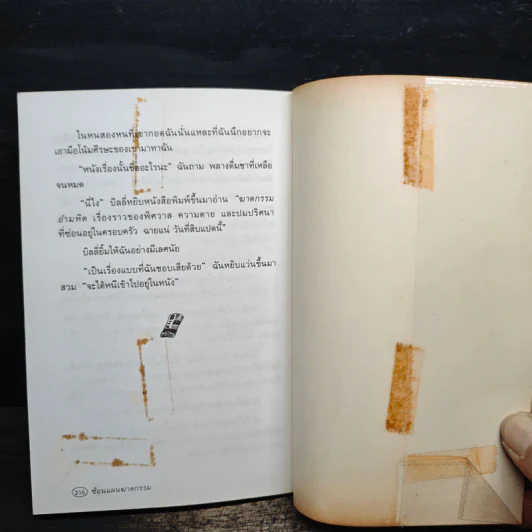 ในหนสองหนที่เขากอดฉันนั่นแหละที่ฉันนึกอยากจะ
เอามือโน้มศีรษะของเขามาหาฉัน
“หนังเรื่องนั้นชื่ออะไรนะ” ฉันถาม พลางดื่มชาที่เหลือ
จนหมด
“นี่ไง” บิลลี่หยิบหนังสือพิมพ์ขึ้นมาอ่าน “ฆาตกรรม
อำมหิต เรื่องราวของพิศวาส ความตาย และปมปริศนา
ที่ซ่อนอยู่ในครอบครัว ฉายแน่ วันที่สิบแปดนี้”
บิลลี่ยิ้มให้ฉันอย่างมีเลศนัย
“เป็นเรื่องแบบที่ฉันชอบเสียด้วย” ฉันหยิบแว่นขึ้นมา
สวม “จะได้หนีเข้าไปอยู่ในหนัง”
216 ซ้อนแผนฆาตกรรม